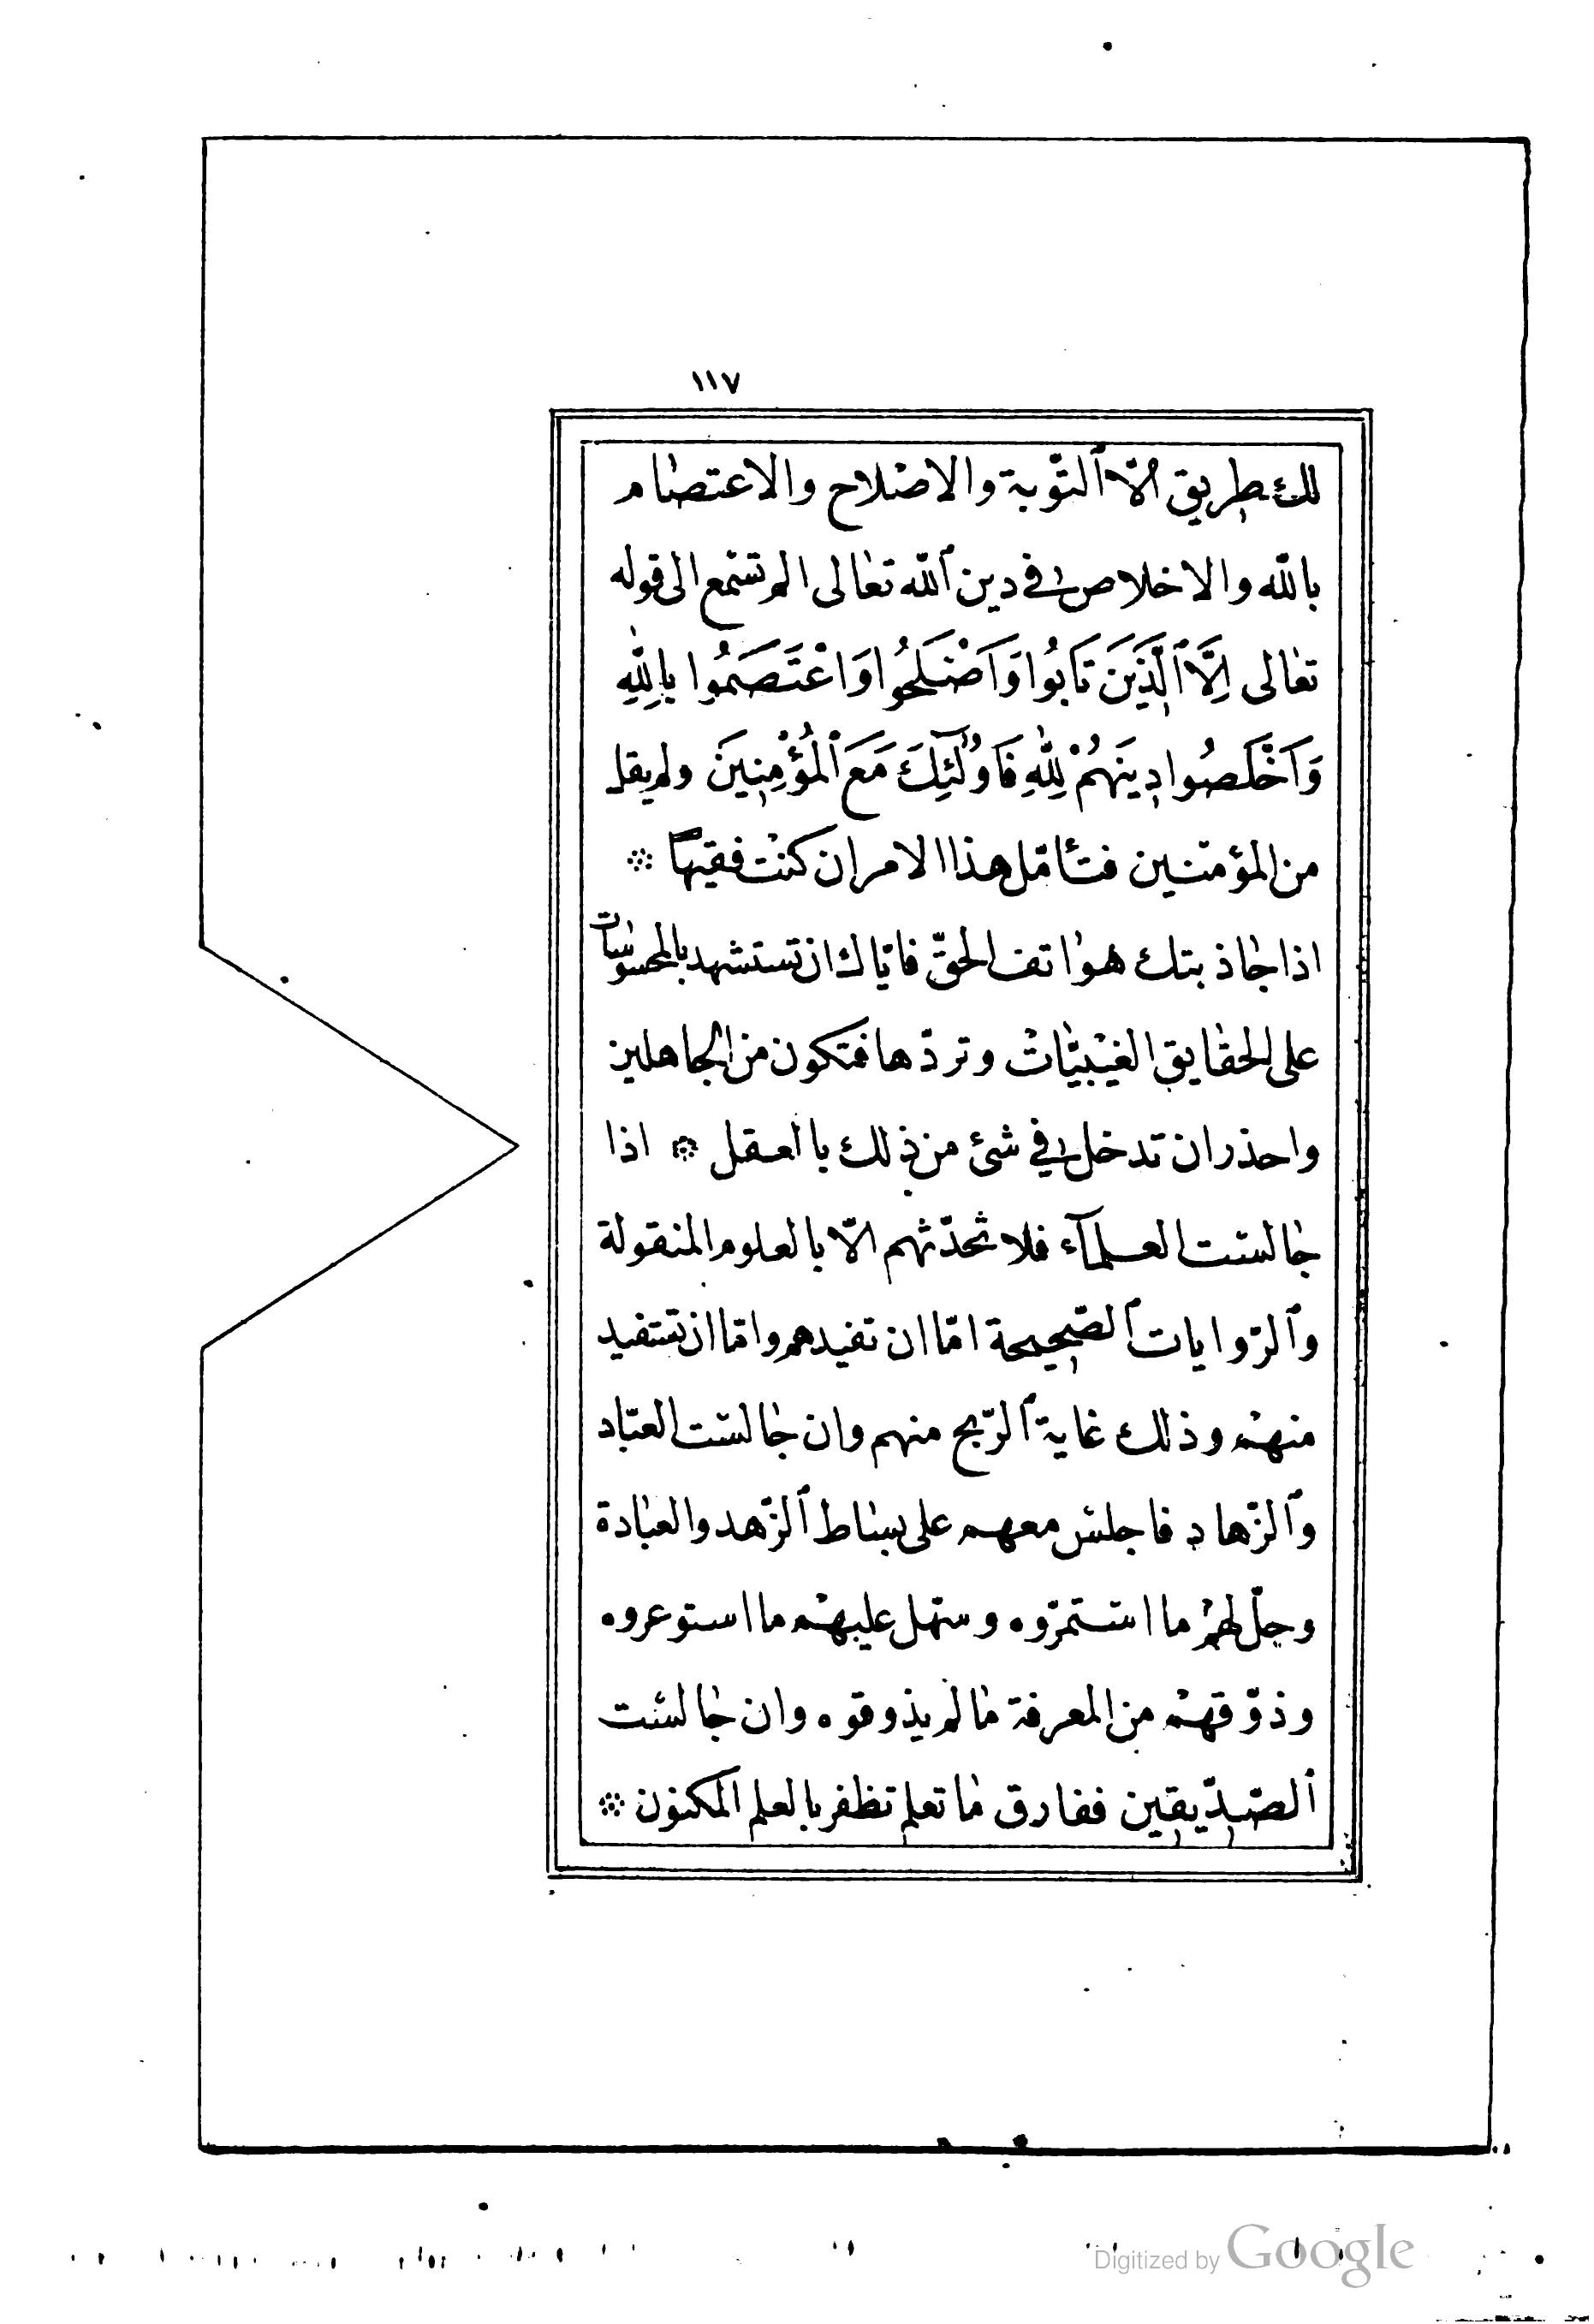 ١١٧
لك طريق الّا ٱلتّوبة والاصْلاح والاعتصٰام
باللّه والاخلاص فى دين ٱللّه تعٰالى الم تسْمع الى قوله
تعٰالى اِلَّا ٱلَّذٖينَ تَابُوا وَاَصْلَحُوا وَاعْتَصَمُوا بِاللّٰهِ
وَاَخْلَصُوا دٖينَهُمْ لِلّٰهِ فَاُولٰٓئِكَ مَعَ ٱلْمُؤْمِنٖينَ ولم يقل
من المؤمنين فتأمّل هذا الامر ان كنْت فقيهاً ❊
اذا جٰاذبتك هوٰاتف الحقّ فايّاك ان تستشهد بالمحسوسٰات
على الحقٰايق الغيْبيّٰاتْ وتردّها فتكون من الجاهلين
واحذر ان تدخل فى شئ من ذلك بالعقل ❊ اذا
جٰالسْت العلمآء فلا تحدّثهم الّا بالعلوم المنقولة
وٱلرّوايات ٱلصّحٖيحة امّا ان تفيدهم وامّا ان تسْتفيد
منهمْ وذلك غاية ٱلرّبح منهم وان جٰالسْت العبّاد
وٱلزّهاد فاجلسْ معهم على بسٰاط ٱلزّهد والعبٰادة
وحلّ لهمْ ما اسْتمرّوه وسهّل عليهمْ ما استوعروه
وذوّقهمْ من المعرفة مٰا لم يذوقوه وان جٰالسْت
ٱلصّدّٖيقٖين ففارق مٰا تعلم تظفر بالعلم المكنون ❊
Digitized by Google